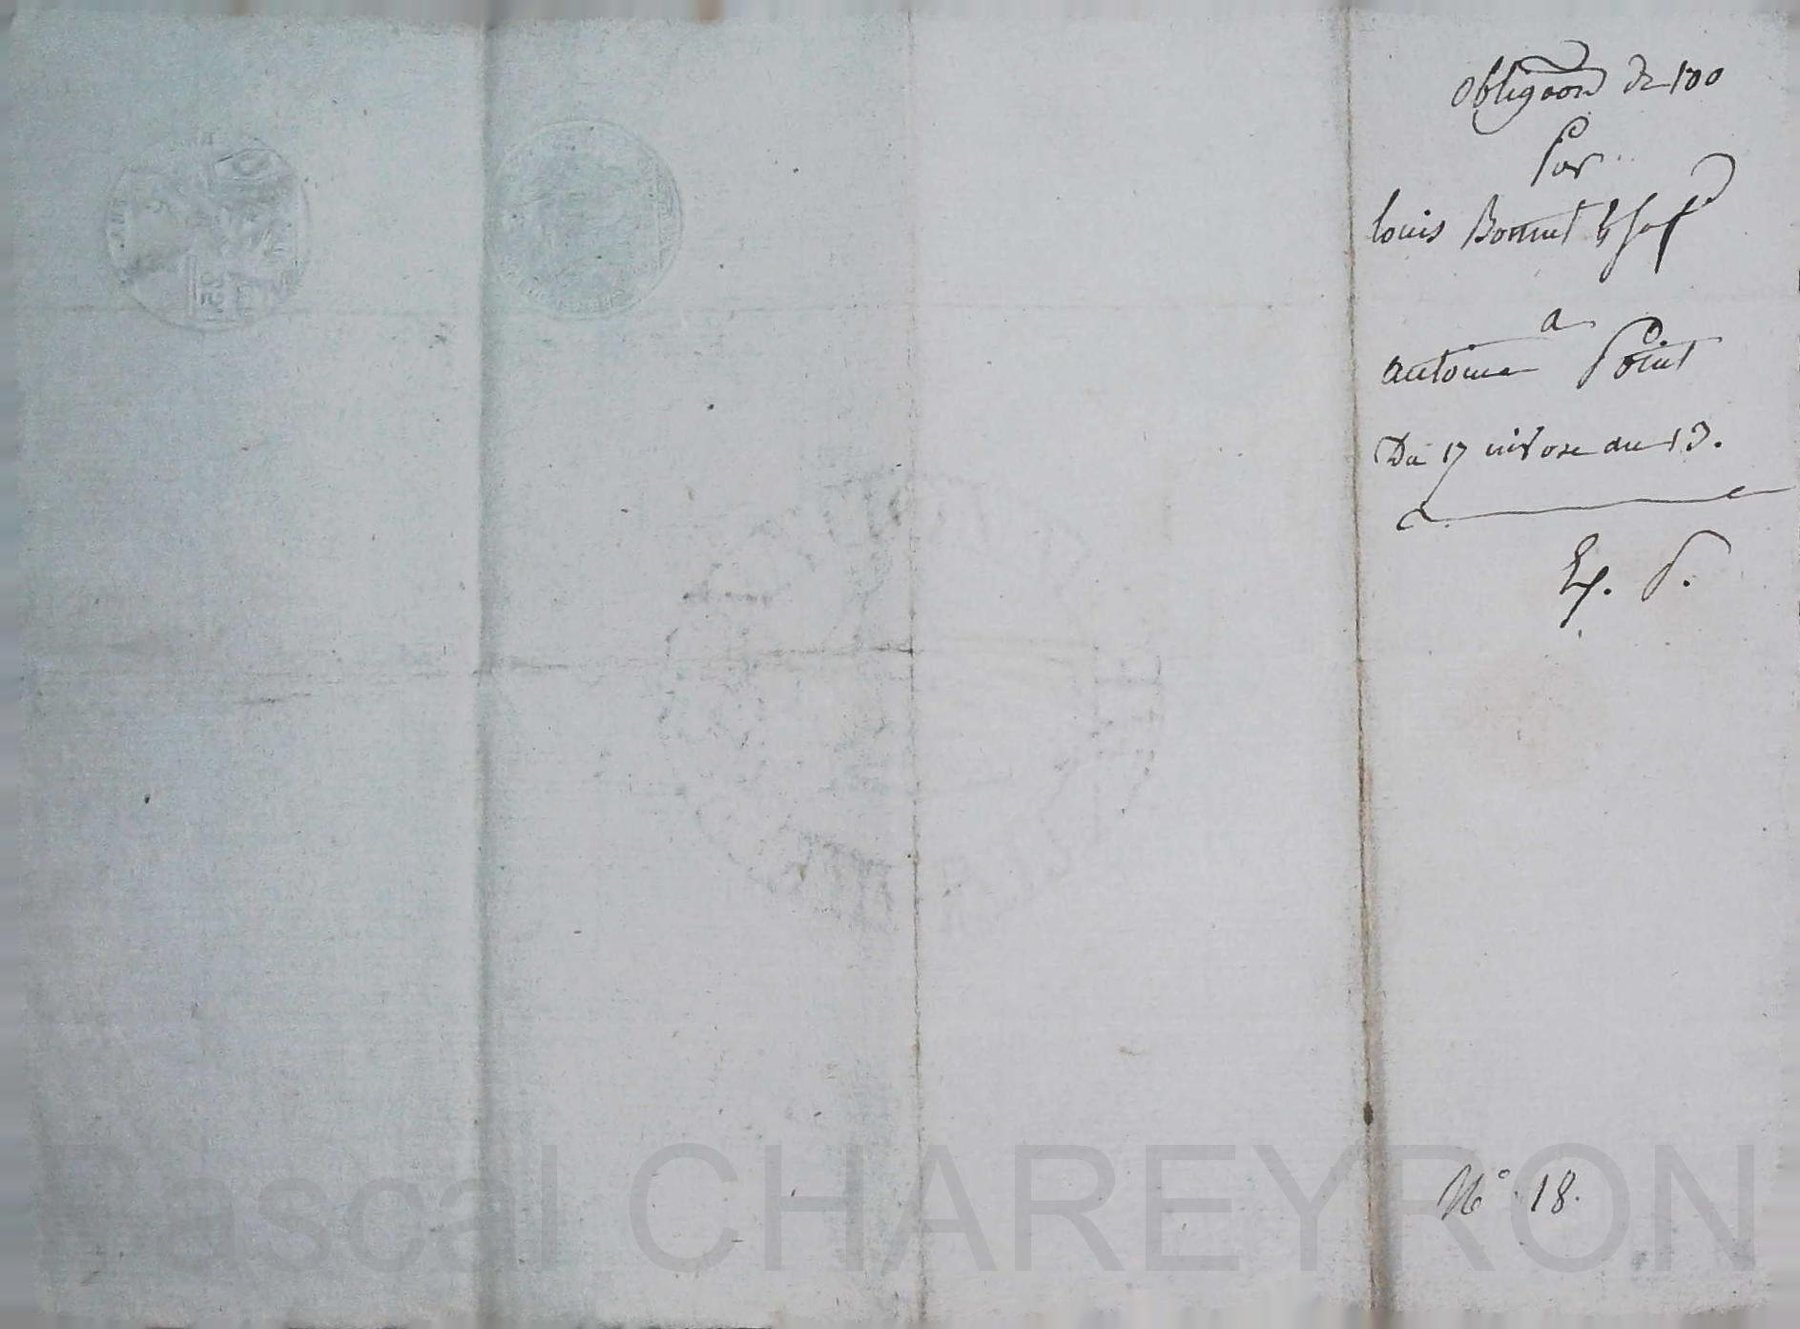 obligaon de 100
Par
louis Bonnut
a
antoine Point
Du 17 nivose an 13.
Ex. P.
N° 18.
Pascal CHAREYRON